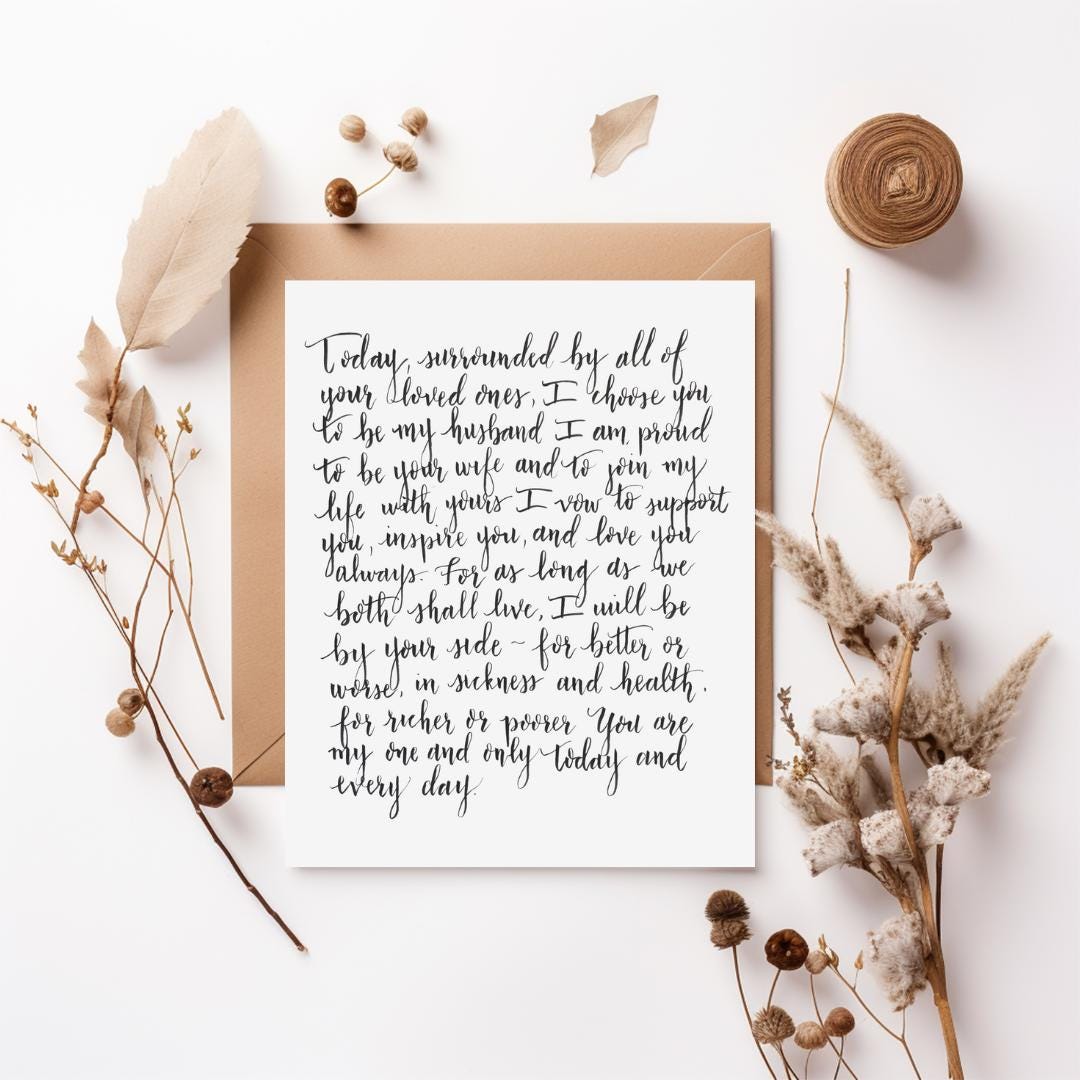 Today, surrounded by all of
your loved ones, I choose you
to be my husband I am proud
to be your wife and to join my
life with yours I vow to support
you, inspire you, and love you
always. For as long as we
both shall live, I will be
by your side ~ for better or
worse, in sickness and health.
for richer or poorer You are
my one and only today and
every day.